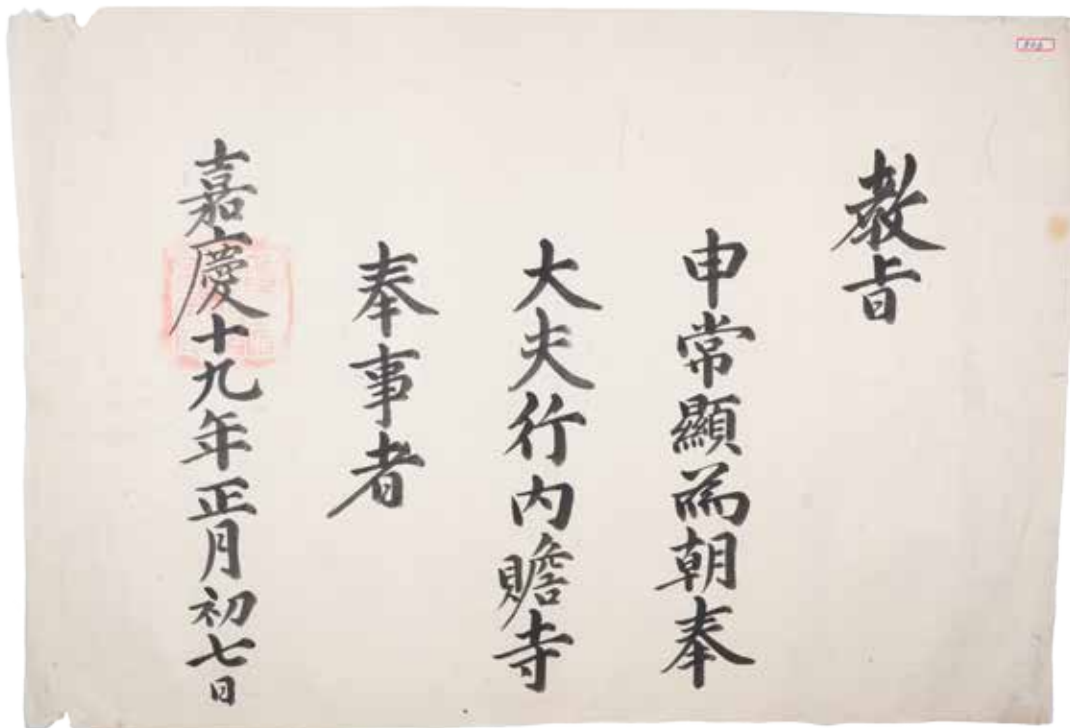 教旨
申常顯爲朝奉
大夫行內贍寺
奉事者
嘉慶十九年正月初七日